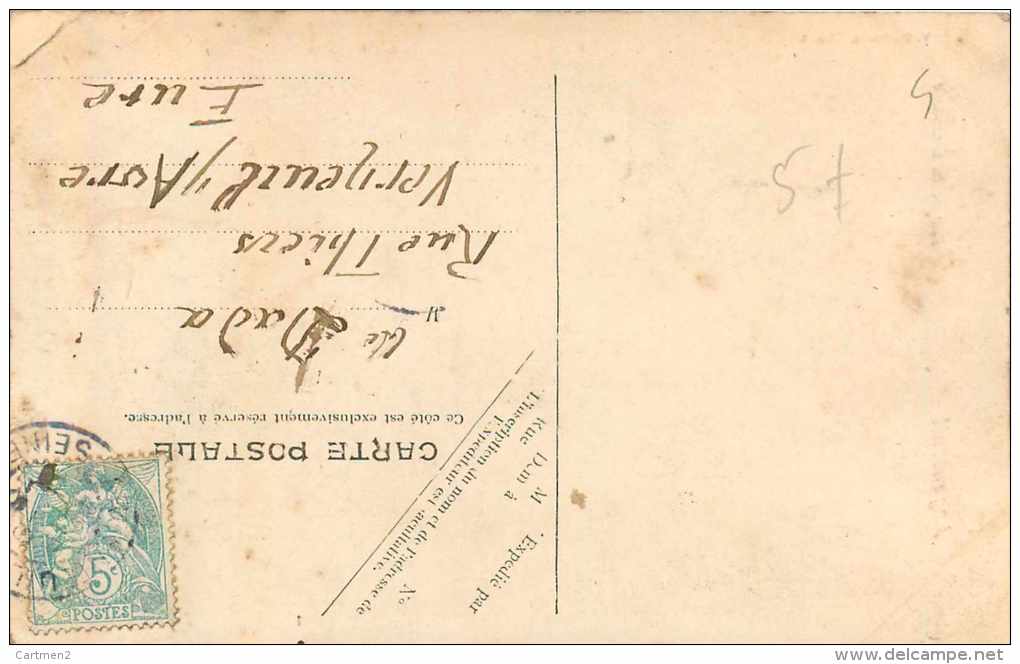 CARTE POSTALE
Ce côté est exclusivement réservé à l'adresse.
M
Dada
Rue Thiers
Verneuil s/ Avre
Eure
Expédié par
M
Dem à
Rue
N°
L'inscription du nom et de l'adresse de
l'expéditeur est facultative.
5c
POSTES
SEINE
5
Cartmen2
www.delcampe.net